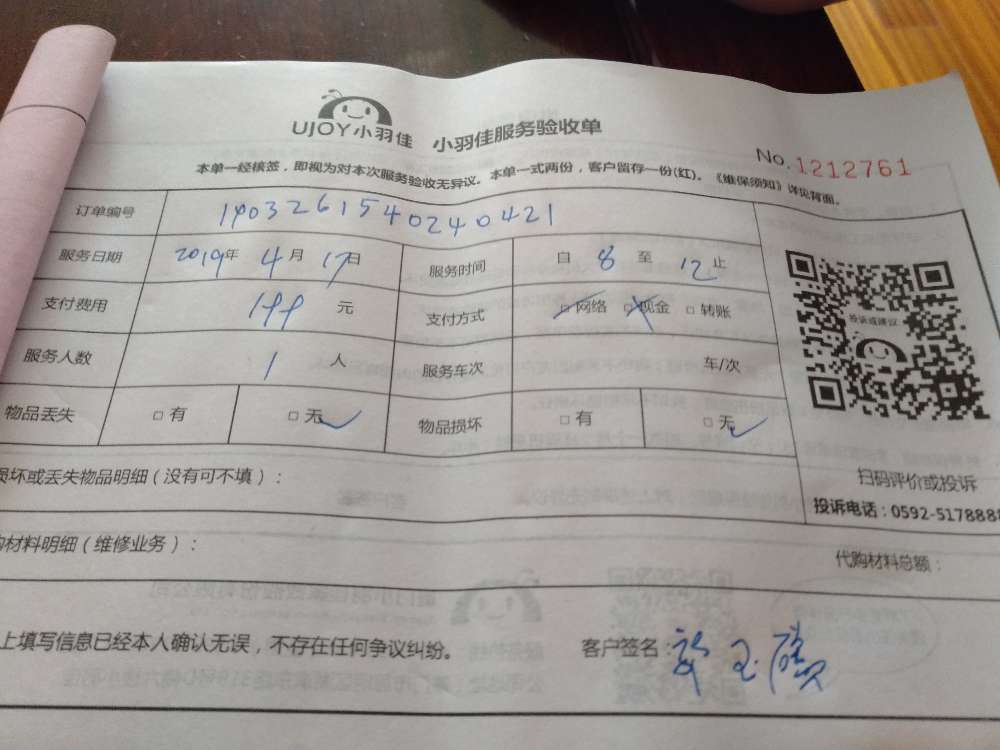 UJOY小羽佳 小羽佳服务验收单
No. 1212761
本单一经核签，即视为对本次服务验收无异议。本单一式两份，客户留存一份(红)。《维保须知》详见背面。
订单编号 1903261540240421
服务日期 2019年 4月 17日 服务时间 自 8 至 12 止
支付费用 199 元 支付方式 □网络 □现金 □转账
服务人数 1 人 服务车次 车/次
物品丢失 □有 □无 物品损坏 □有 □无
投诉或建议
扫码评价或投诉
投诉电话：0592-5178888
损坏或丢失物品明细（没有可不填）：
购材料明细（维修业务）： 代购材料总额：
上填写信息已经本人确认无误，不存在任何争议纠纷。 客户签名：